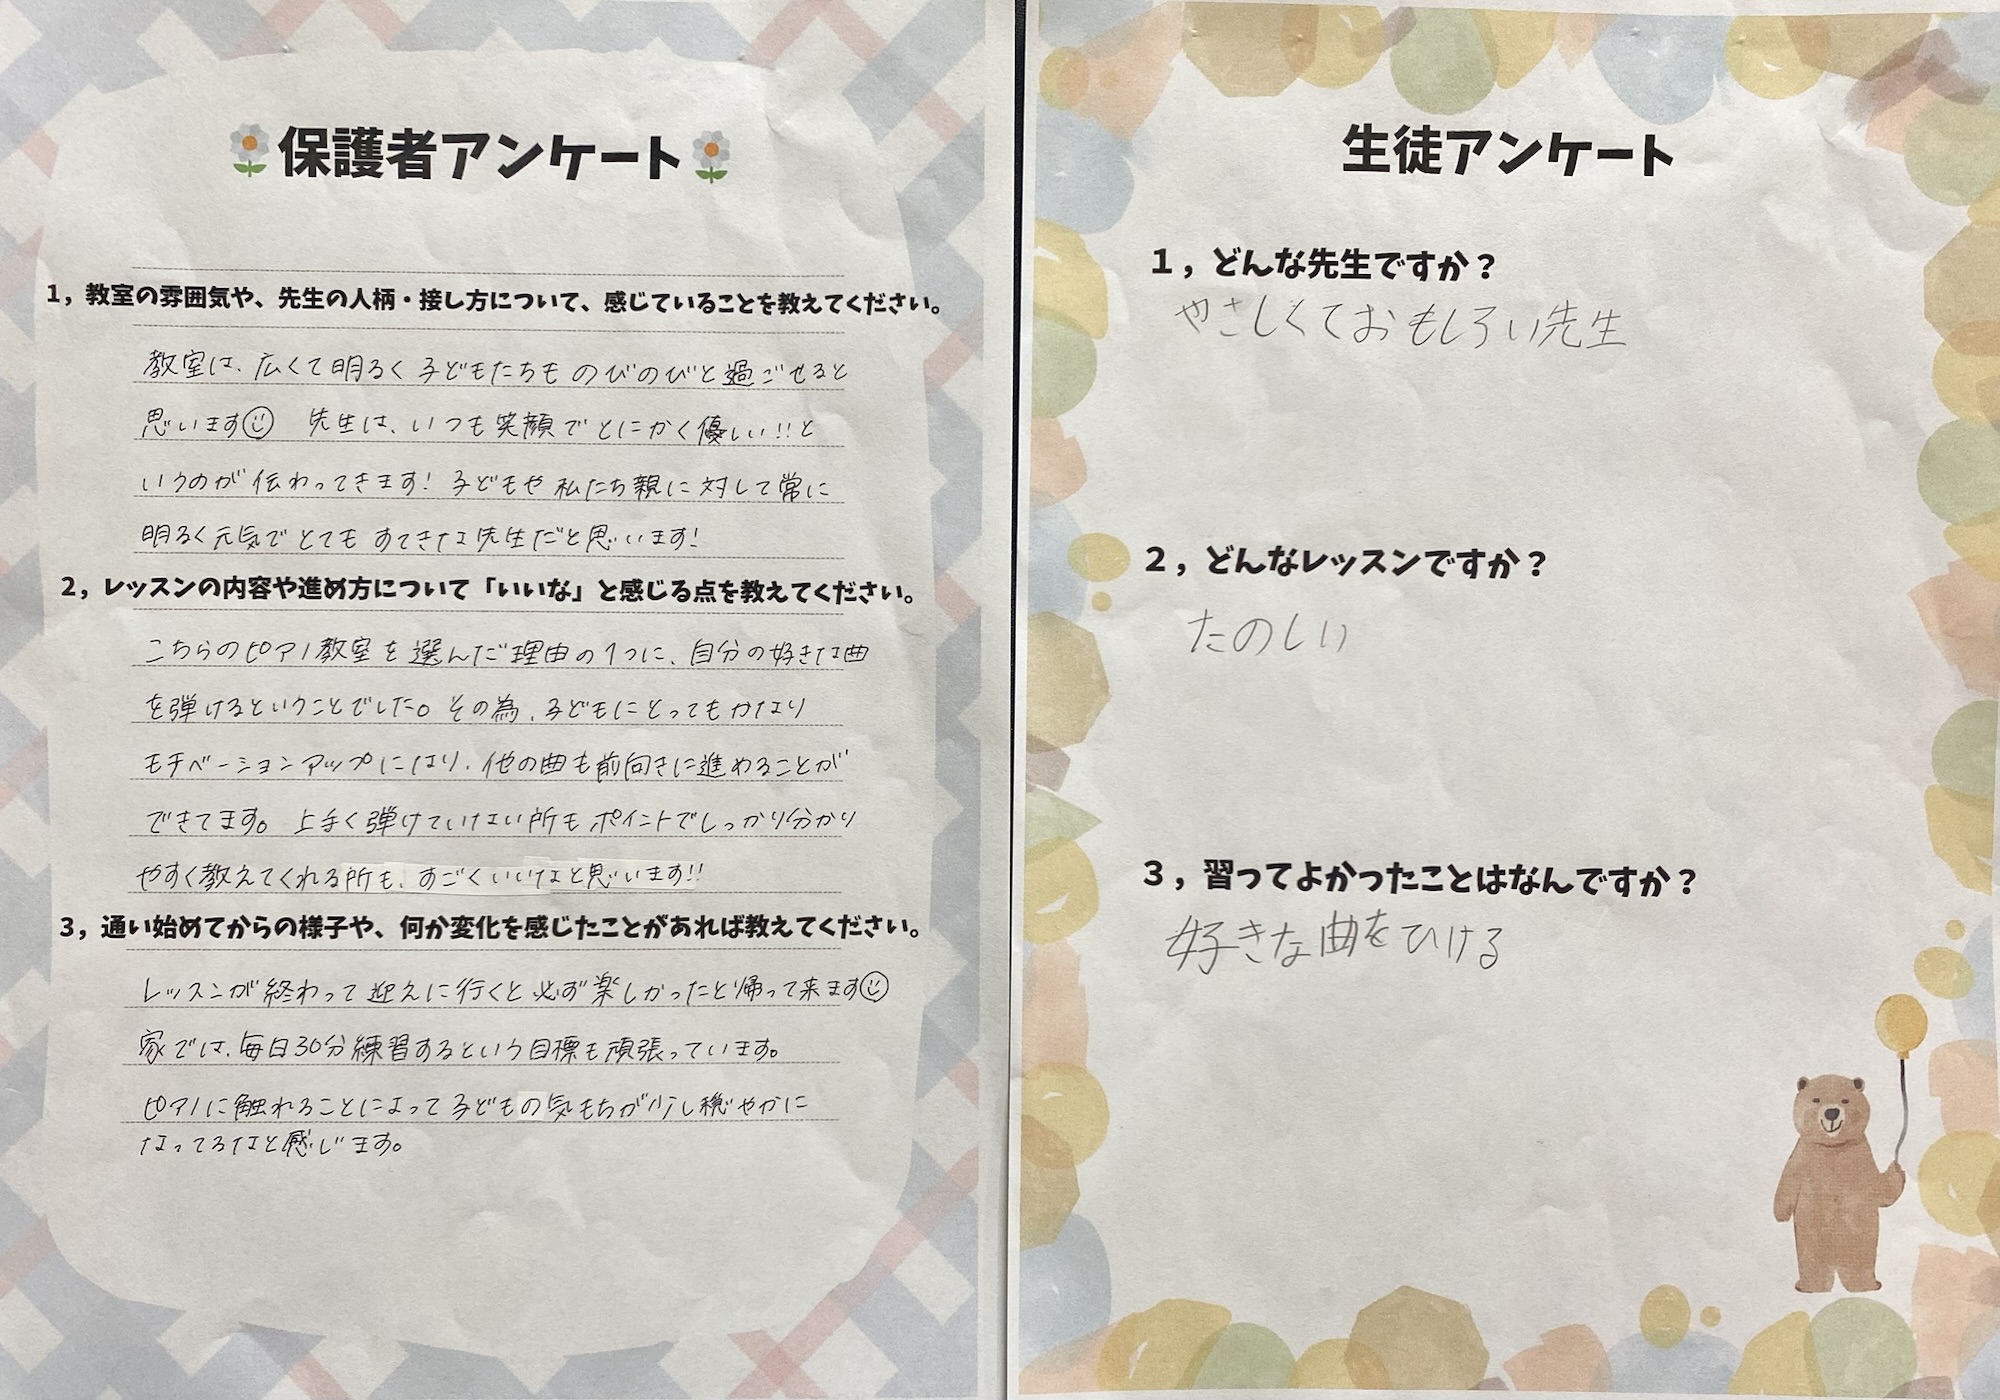 保護者アンケート
1，教室の雰囲気や、先生の人柄・接し方について、感じていることを教えてください。
教室は、広くて明るく子どもたちものびのびと過ごせると
思います☺ 先生は、いつも笑顔でとにかく優しい!!と
いうのが伝わってきます! 子どもや私たち親に対して常に
明るく元気でとてもすてきな先生だと思います!
2，レッスンの内容や進め方について「いいな」と感じる点を教えてください。
こちらのピアノ教室を選んだ理由の1つに、自分の好きな曲
を弾けるということでした。その為、子どもにとってもかなり
モチベーションアップになり、他の曲も前向きに進めることが
できてます。上手く弾けていない所もポイントでしっかり分かり
やすく教えてくれる所も、すごくいいなと思います!!
3，通い始めてからの様子や、何か変化を感じたことがあれば教えてください。
レッスンが終わって迎えに行くと必ず楽しかったと帰って来ます☺
家では、毎日30分練習するという目標も頑張っています。
ピアノに触れることによって子どもの気もちが少し穏やかに
なってるなと感じます。
生徒アンケート
1，どんな先生ですか？
やさしくておもしろい先生
2，どんなレッスンですか？
たのしい
3，習ってよかったことはなんですか？
好きな曲をひける